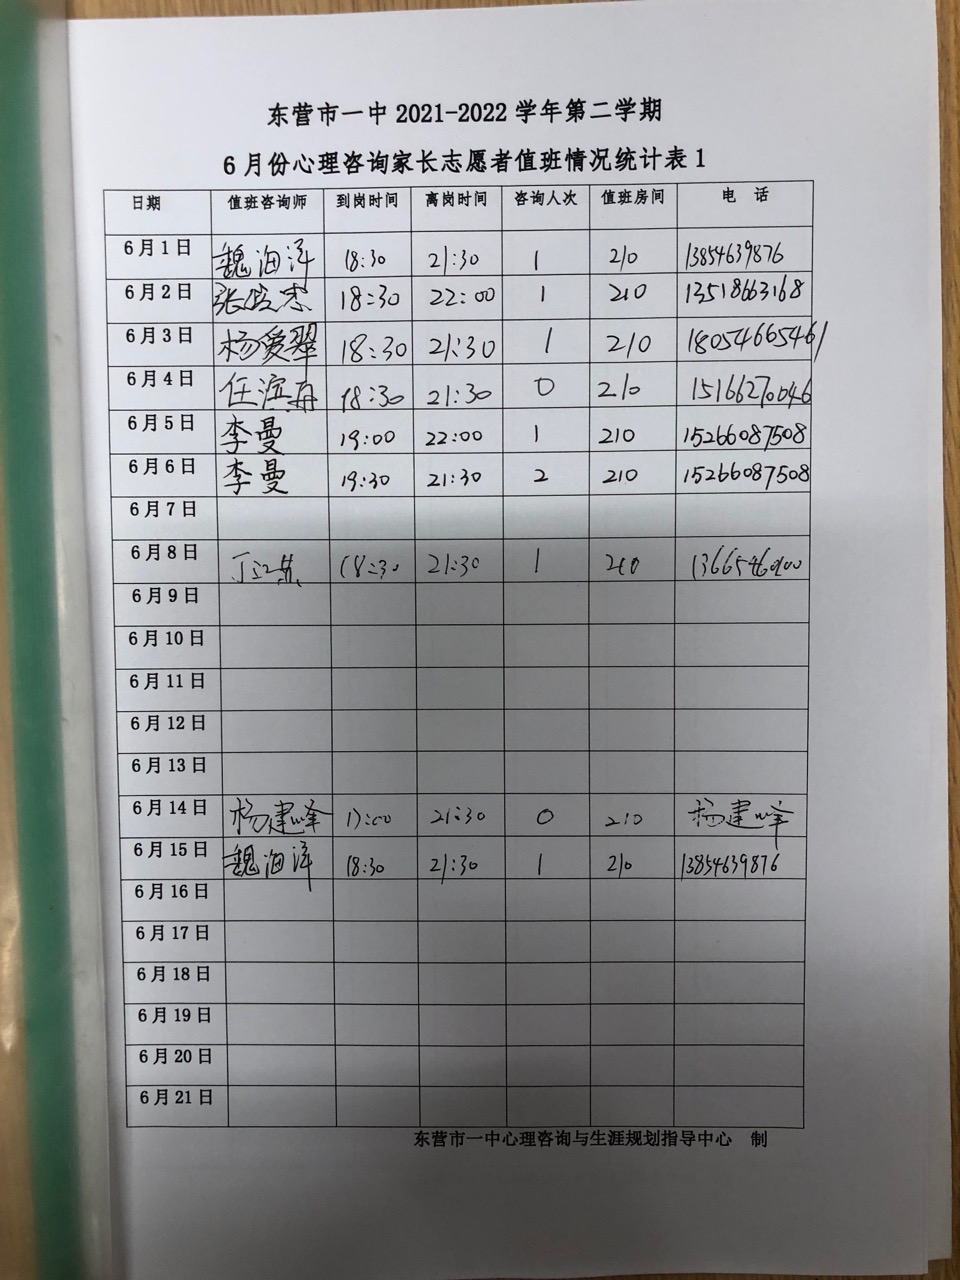 东营市一中 2021-2022 学年第二学期
6 月份心理咨询家长志愿者值班情况统计表 1
日期 值班咨询师 到岗时间 离岗时间 咨询人次 值班房间 电 话
6 月 1 日 魏海洋 18:30 21:30 1 210 13854639876
6 月 2 日 张 志 18:30 22:00 1 210 13518663168
6 月 3 日 杨爱翠 18:30 21:30 1 210 18054665461
6 月 4 日 任滨 18:30 21:30 0 210 15166270046
6 月 5 日 李曼 19:00 22:00 1 210 15266087508
6 月 6 日 李曼 19:30 21:30 2 210 15266087508
6 月 7 日
6 月 8 日 丁 18:30 21:30 1 210
6 月 9 日
6 月 10 日
6 月 11 日
6 月 12 日
6 月 13 日
6 月 14 日 杨建峰 21:30 0 210 杨建峰
6 月 15 日 魏海洋 18:30 21:30 1 210 13854639876
6 月 16 日
6 月 17 日
6 月 18 日
6 月 19 日
6 月 20 日
6 月 21 日
东营市一中心理咨询与生涯规划指导中心 制